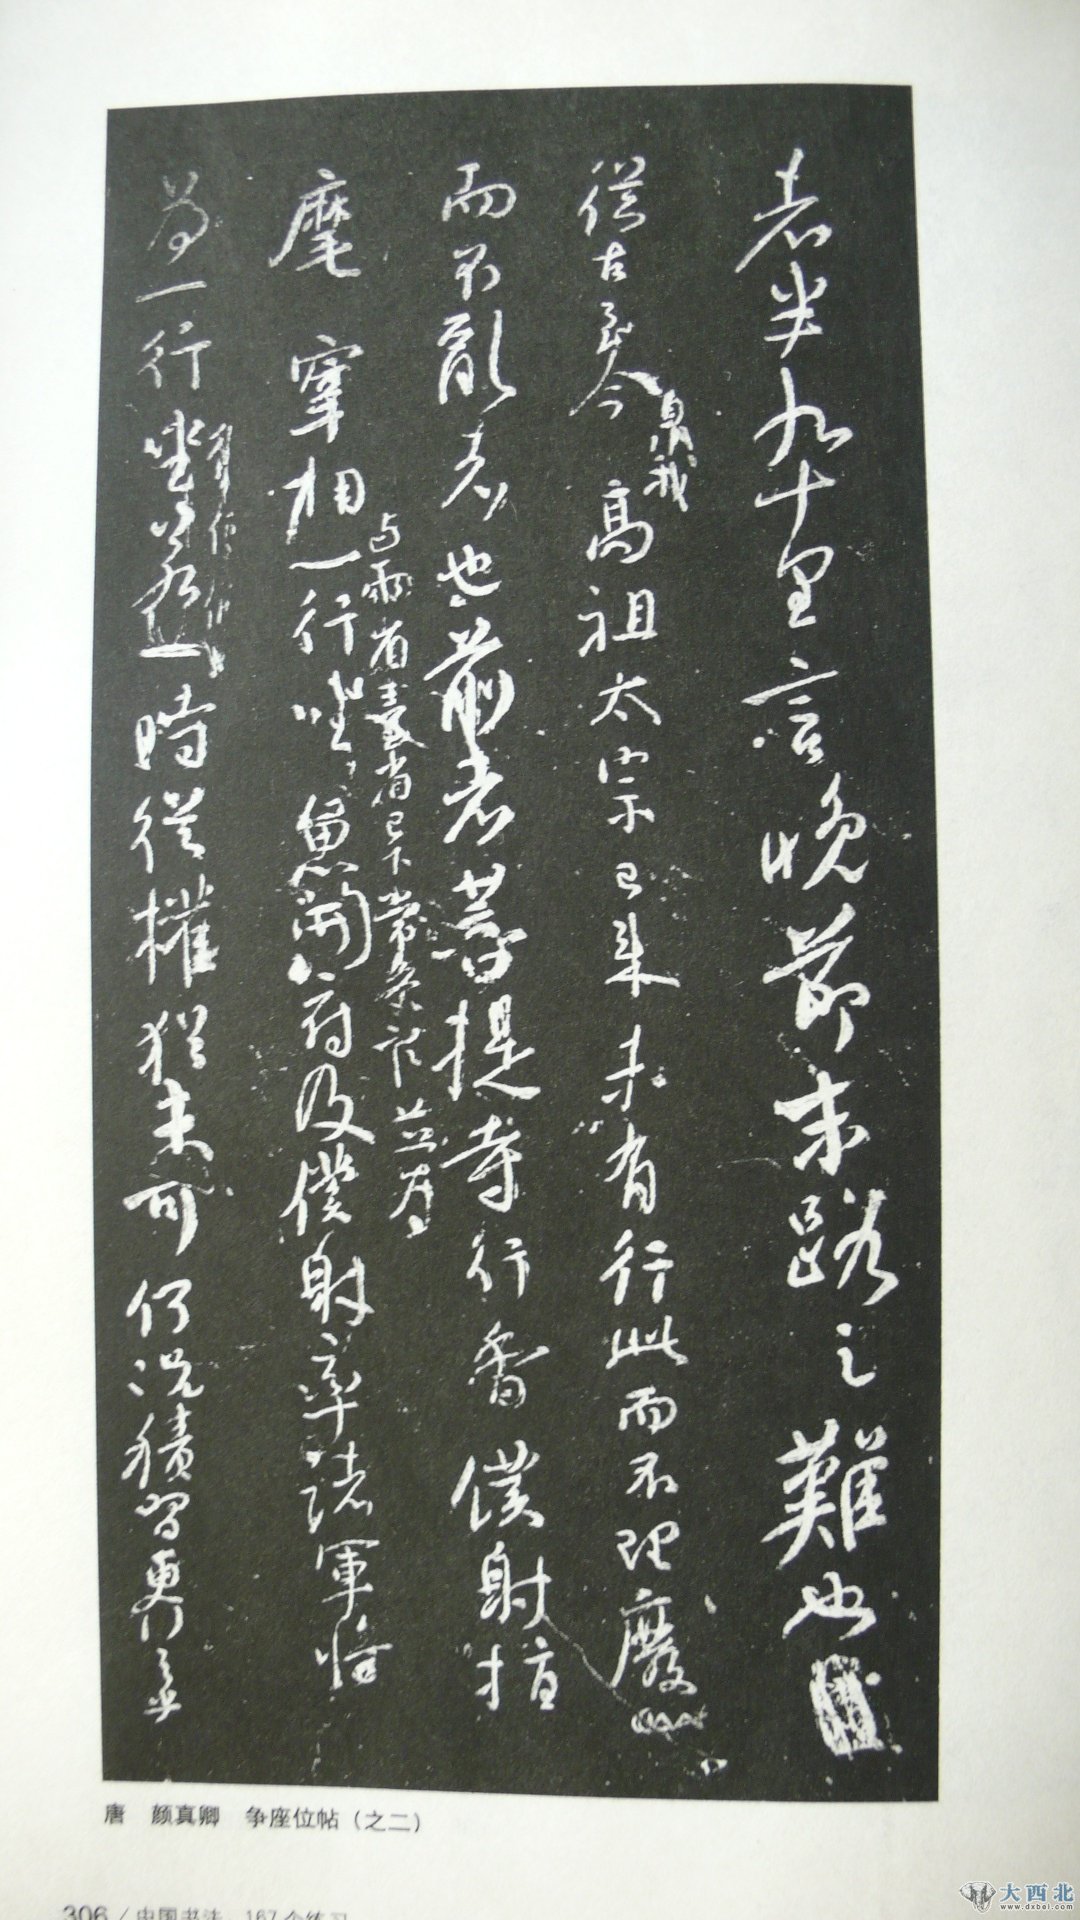 者半九十里言晚節末路之難也
從古至今暨我高祖太宗已來未有行此而不理廢
而不亂者也前者菩提寺行香僕射指
麾宰相一行坐魚開府及僕射率諸軍將
與兩省臺省已下常參官並為
為一行坐一時從權猶未可何況積習更行
唐 颜真卿 争座位帖（之二）
306 / 中国书法·167个练习
大西北
www.dxbei.com